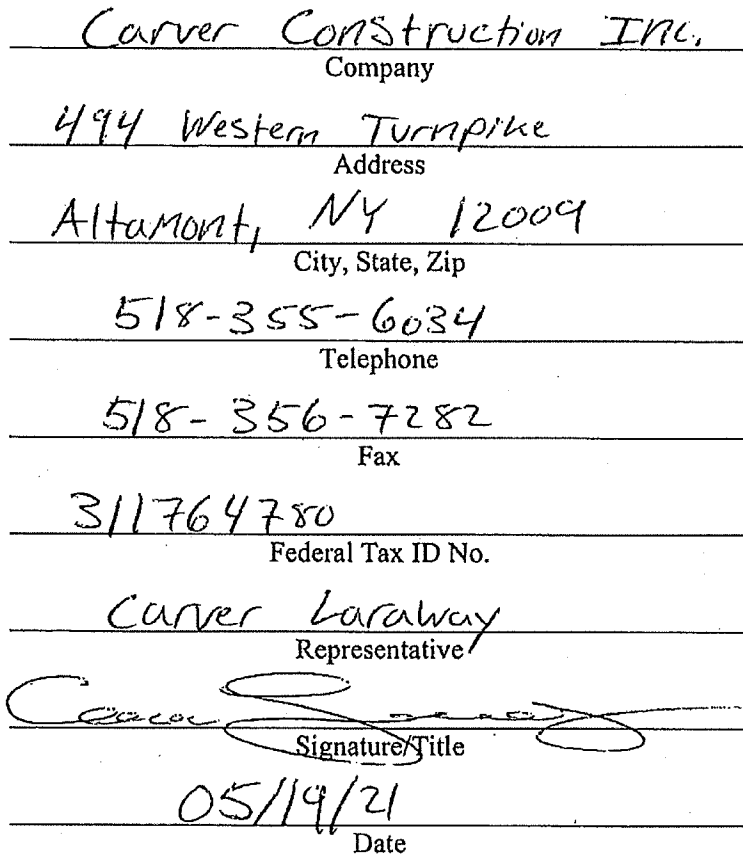 Carver Construction Inc.
Company
494 Western Turnpike
Address
Altamont, NY 12009
City, State, Zip
518-355-6034
Telephone
518-356-7282
Fax
311764780
Federal Tax ID No.
Carver Laraway
Representative
Signature/Title
05/19/21
Date